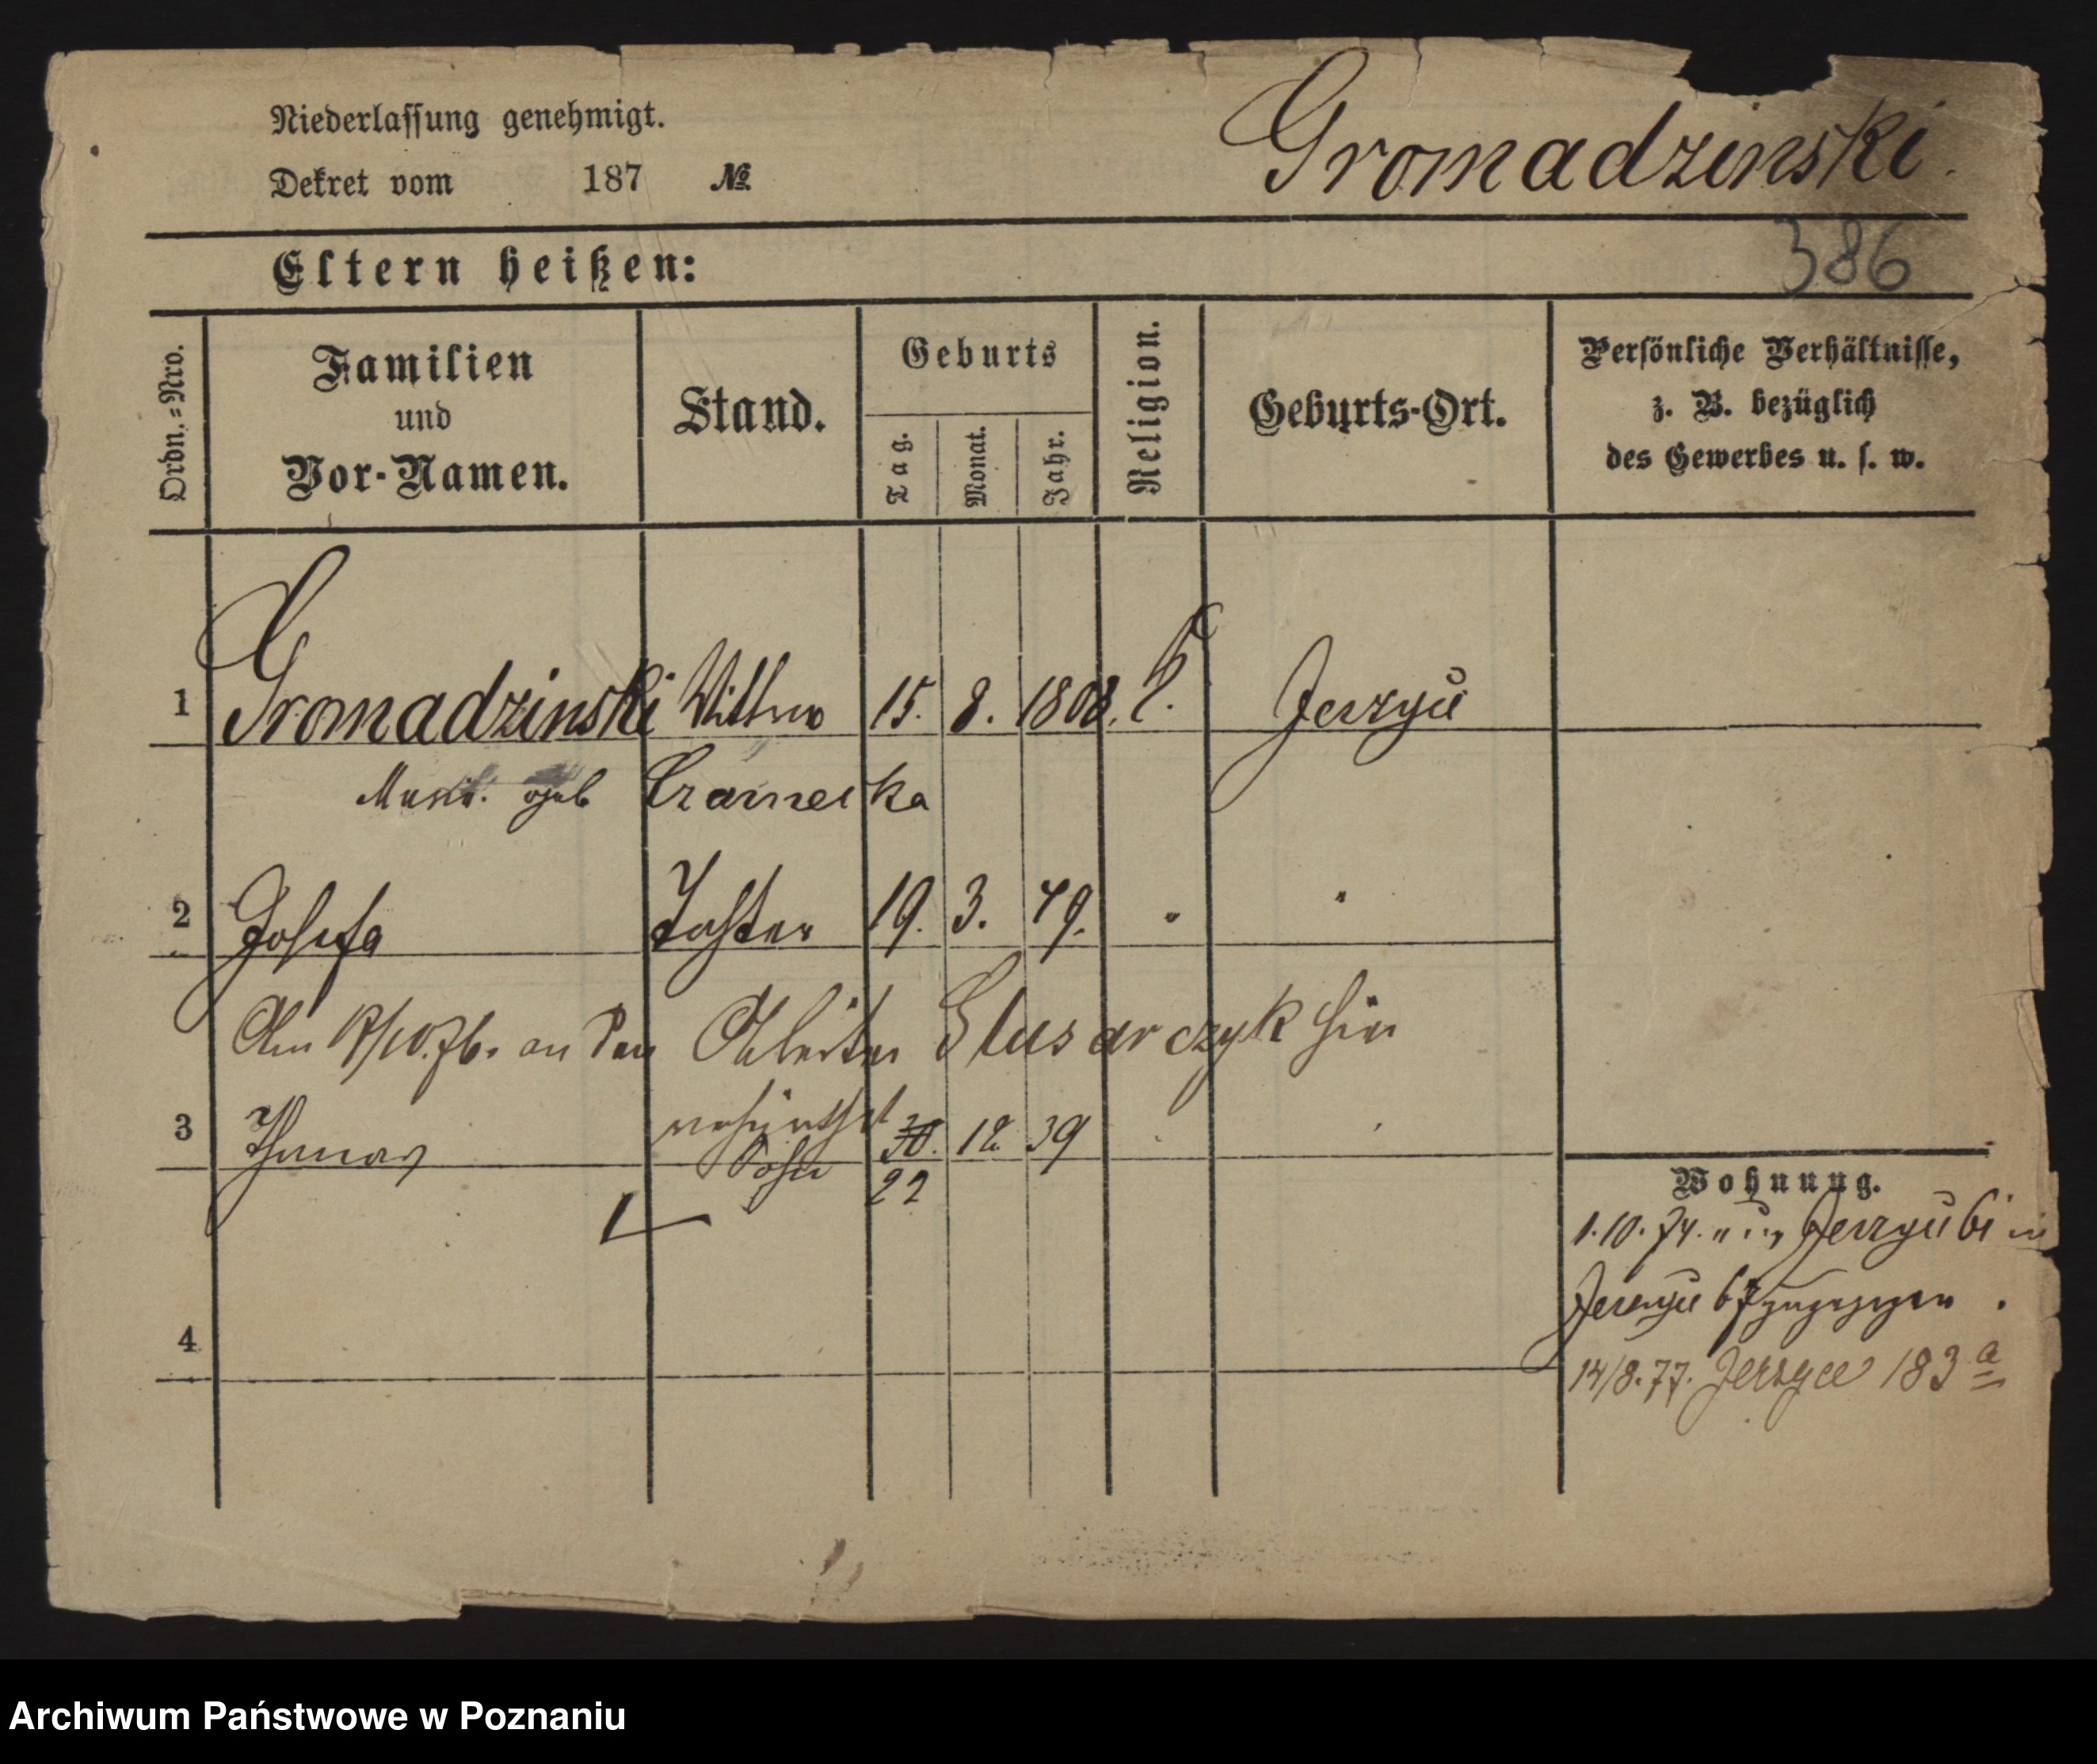 Niederlassung genehmigt.
Dekret vom 187 №
Gromadzinski.
386
Eltern heißen:
Ordn.=Nro.
Familien und Vor-Namen.
Stand.
Geburts
Tag.
Monat.
Jahr.
Religion.
Geburts-Ort.
Persönliche Verhältnisse,
z. B. bezüglich
des Gewerbes u. s. w.
1 Gromadzinski Wittwe 15. 8. 1808. Jerzyce
geb
2 Josefa Tochter 19. 3. 49. " "
Am an den Arbeiter Slusarczyk hier
verheirathet
3 Thomas Sohn 30. 12 39
22
4
Wohnung.
1.10.74. Jerzyce in
Jerzyce 67 zugezogen.
14/8.77. Jerzyce 183 a
Archiwum Państwowe w Poznaniu